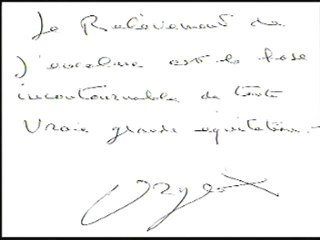 Le Relèvement de
l'encolure est la base
incontournable de toute
Vraie grande équitation. -
Orgeix